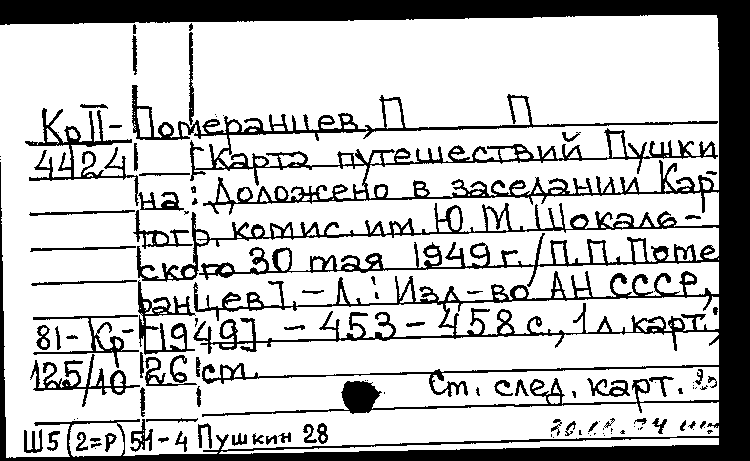 КрП- Померанцев, П П
4424 [Карта путешествий Пушки
на: Доложено в заседании Кар
тогр. комис. им. Ю.М. Шокаль-
ского 30 мая 1949 г. /П.П. Поме
ранцев]. - Л.: Изд-во АН СССР,
81-Кр- [1949]. - 453-458 с., 1 л. карт.;
125/10 26 см.
См. след. карт.
Ш5(2=Р)51-4 Пушкин 28